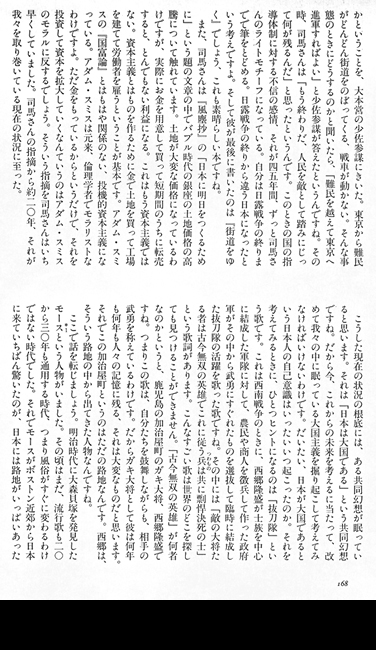 かということを、大本営の少佐参謀にきいた。東京から難民
がどんどん街道をのぼってくる、戦車が動かない。そんな事
態のときにどうするのかと聞いたら、「難民を越えて東京へ
進軍すればよい」と少佐参謀が答えたというんですね。その
時、司馬さんは「もう終わりだ、人民を敵として踏みにじっ
て何が残るんだ」と思ったというんです。このときの国の指
導体制に対する不信の感情、それが四五年間、ずっと司馬さ
んのライトモチーフになっている。自分は日露戦争の終りま
でで筆をとどめる。日露戦争の終りから違う日本になったと
いう考えですよ。そして彼が最後に書いたのは『街道をゆ
く』でしょう、これも素晴らしい本ですね。
また、司馬さんは『風塵抄』の「日本に明日をつくるため
に」という題の文章の中でバブル時代の銀座の土地価格の高
騰について触れています。土地が大変な価格になっているわ
けですが、実際にお金を用意して買って短期のうちに転売
すると、とんでもない利益になる。これはもう資本主義では
ない。資本主義とはものを作るために金で土地を買って工場
を建てて労働者を雇うということが基本です。アダム・スミ
スの『国富論』とはもはや関係のない、投機的資本主義にな
っている。アダム・スミスは元来、倫理学者でモラリストな
わけですね。ただ金をもっているからというだけで、それを
投資して資本を拡大していくなんていうのはアダム・スミス
のモラルに反するでしょう。そういう指摘を司馬さんはいち
早くしていました。司馬さんの指摘から約二〇年、それが
我々を取り巻いている現在の状況に至った。
こうした現在の状況の根底には、ある共同幻想が眠ってい
ると思います。それは「日本は大国である」という共同幻想
ですね。だから今、これからの未来を考えるに当たって、改
めて我々の中に眠っている大国主義を掘り起こして考えてみ
なければいけないわけです。だいたい、日本が大国であると
いう日本人の自己意識はいったいいつ起こったのか。それを
考えてみるときに、ひとつヒントになるのは「抜刀隊」とい
う歌です。これは西南戦争のときに、西郷隆盛が士族を中心
に結成した軍隊に対して、農民や商人を徴兵して作った政府
軍がその中から武勇にすぐれたものを選抜して臨時に結成し
た抜刀隊の活躍を歌った歌ですね。その中には「敵の大将た
る者は古今無双の英雄でこれに従う兵は共に剽悍決死の士」
という歌詞があります。こんなすごい歌は世界のどこを探し
ても見つけることができません。「古今無双の英雄」が何者
なのかというと、鹿児島の加治屋町のガキ大将、西郷隆盛で
すね。つまりこの歌は、自分たちを鼓舞しながらも、相手の
武勇を称えているわけです。だからガキ大将として彼は何年
も何年も人々の記憶に残る、それは大変なものだと思います。
それでこの加治屋町というのはただの路地なんです。西郷は、
そういう路地の中から出てきた人物なんですね。
ここで話を転じましょう。明治時代に大森貝塚を発見した
モースという人物がいました。その頃はまだ、流行歌も二〇
から三〇年も通用する時代、つまり風俗がすぐに変わるわけ
ではない時代でした。それでモースがボストン近郊から日本
に来ていちばん驚いたのが、日本には路地がいっぱいあった
168